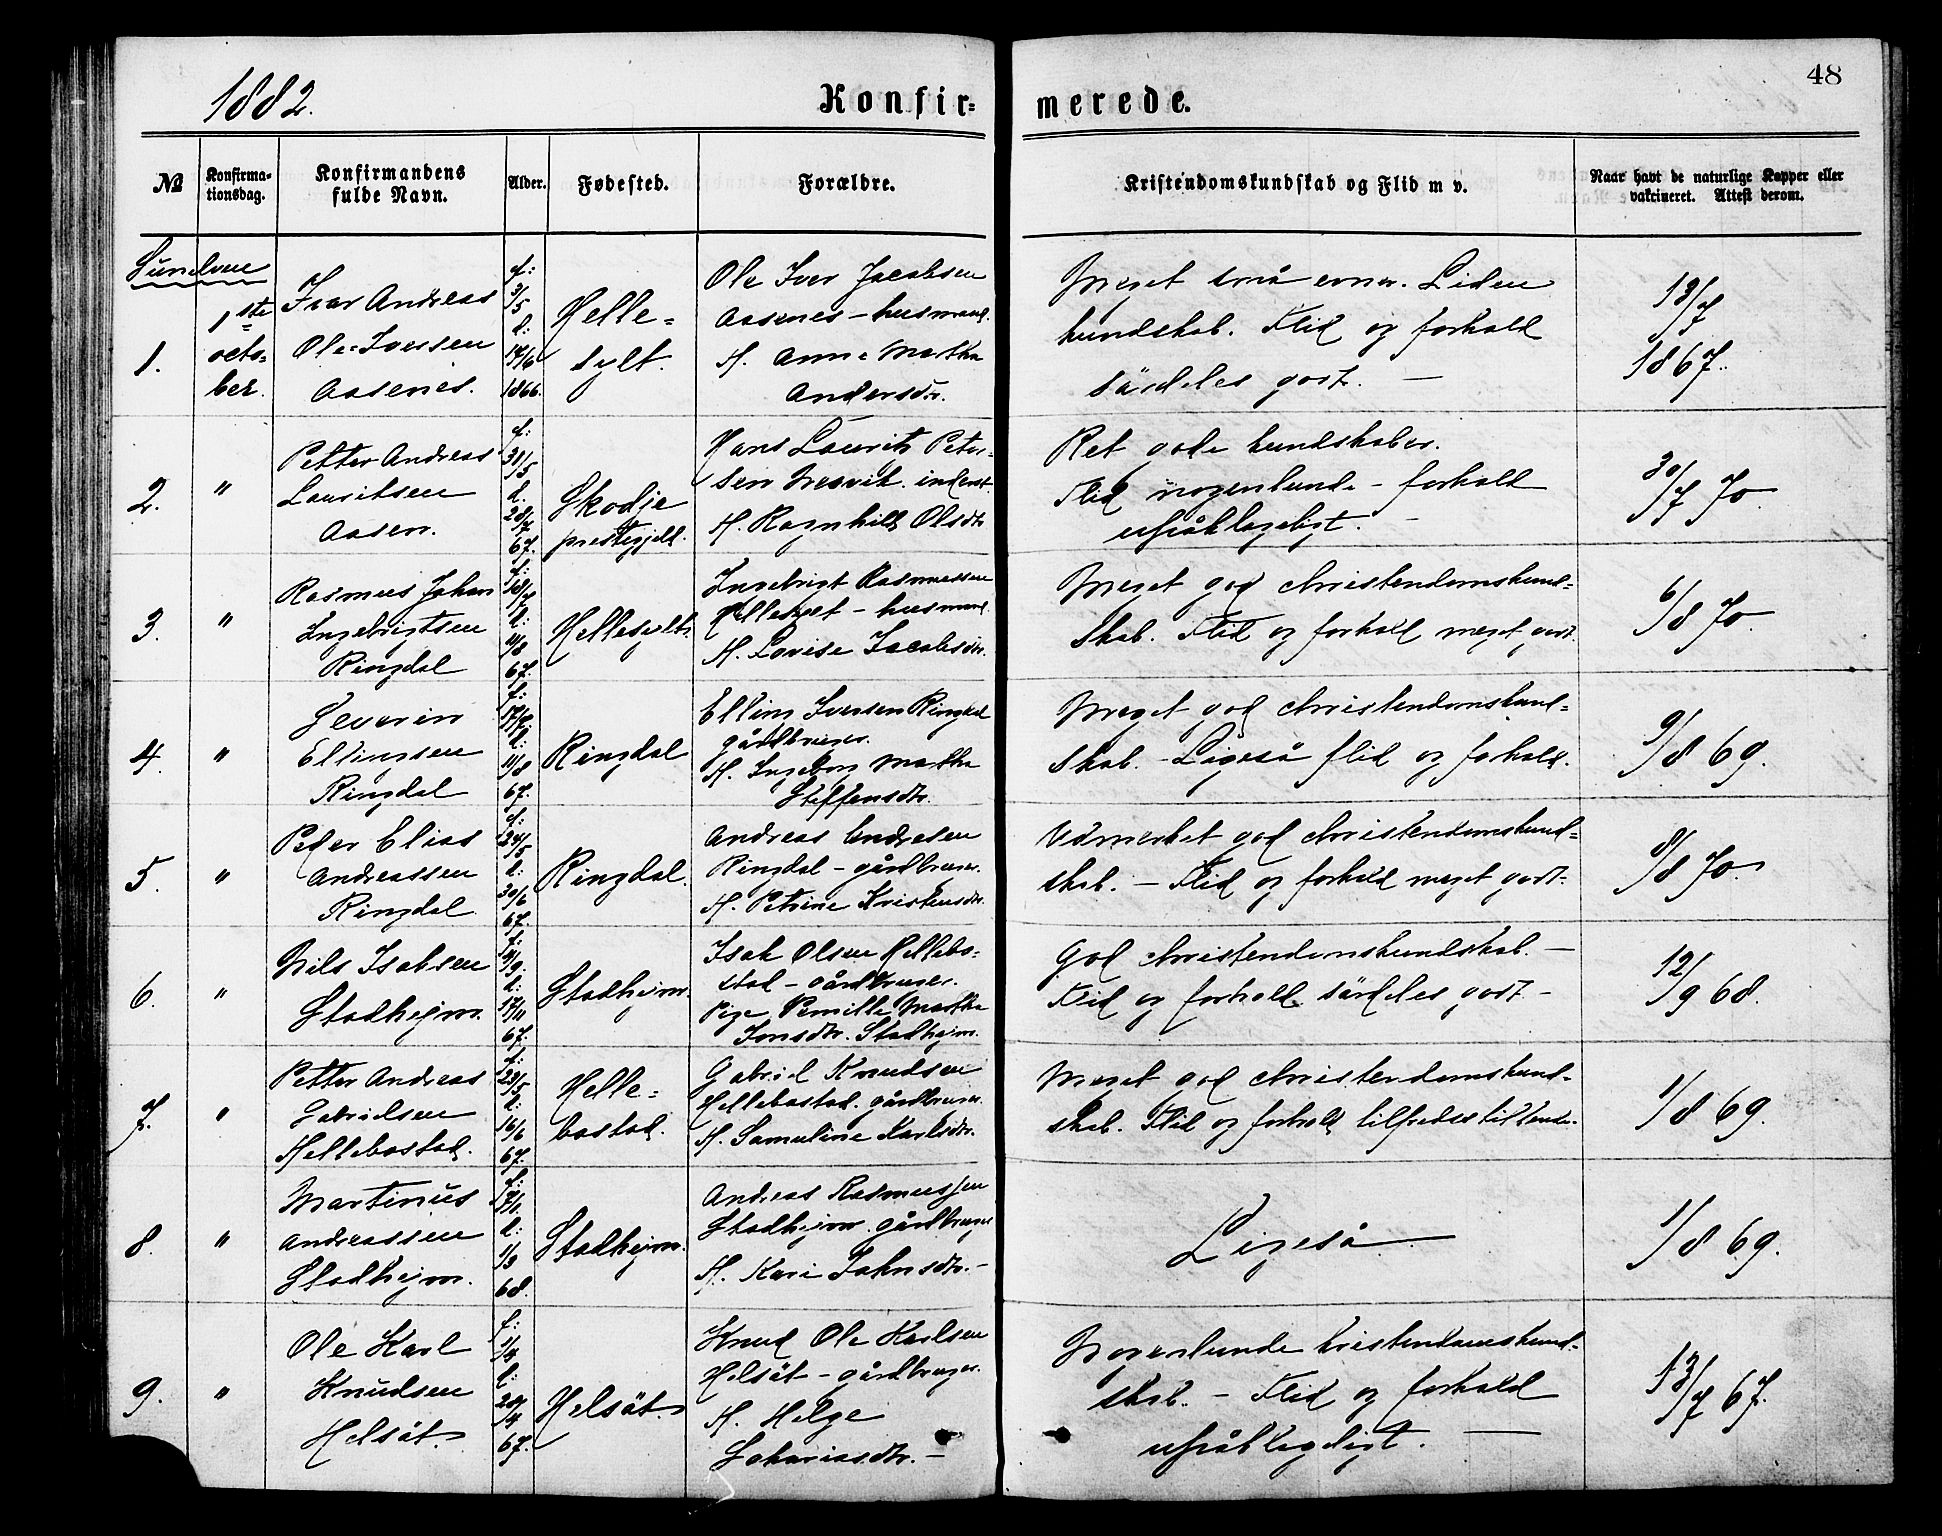 1882.
Konfir-
merede.
48
No
Konfirma-
tionsdag.
Konfirmandens
fulde Navn.
Alder.
Fødested.
Forældre.
Kristendomskundskab og Flid m v.
Naar havt de naturlige Kopper eller
vakcineret. Attest derom.
Sunelven
1.
1ste
octo-
ber.
Ivar Andreas
Ole-Iversen
Aasenes.
f:
3/5
d:
17/6
1866.
Helle-
sylt.
Ole Iver Jacobsen
Aasenes - husmand.
H. Anne Martha
Andersdtr.
Meget små evner. Liden
kundskab. Flid og forhold
särdeles godt. —
13/7
1867.
2.
"
Petter Andreas
Lauritsen
Aasen.
f:
31/5
d.
28/7
67.
Skodje
prestegjeld.
Hans Laurits Peter-
sen Nesvik. inderst.
H. Ragnhild Olsdtr
Ret gode kundskaber.
Flid nogenlunde - forhold
upåklageligt. -
30/7 70.
3.
"
Rasmus Johan
Ingebrigtsen
Ringdal
f:
18/7
d:
11/8
67.
Hellesylt.
Ingebrigt Rasmussen
Hellesylt - husmand.
H. Lovise Jacobsdtr.
Meget god christendomskund-
skab. Flid og forhold meget godt.
6/8 70.
4.
"
Severin
Ellingsen
Ringdal
f:
17/7
d:
11/8
67.
Ringdal
Elling Iversen Ringdal
gårdbruger.
H. Ingeborg Martha
Steffensdtr.
Meget god christendomskund-
skab. - Ligeså flid og forhold.
9/8 69.
5.
"
Peder Elias
Andreassen
Ringdal
f:
24/5
d:
30/6
67.
Ringdal.
Andreas Andresen
Ringdal - gårdbruger.
H. Petrine Kristensdtr.
Udmerket god christendomskund-
skab. - Flid og forhold meget godt.
8/8 70.
6.
"
Nils Isaksen
Stadhejm.
f:
14/9
d:
17/11
67.
Stadhejm.
Isak Olsen Hellebo-
stad - gårdbruger.
Pige Pernille Martha
Jonsdtr. Stadhejm.
God christendomskundskab. —
Flid og forhold särdeles godt -
12/9 68.
7.
"
Petter Andreas
Gabrielsen
Hellebostad.
f:
23/5
d:
16/6
67.
Helle-
bostad.
Gabriel Knudsen
Hellebostad. gårdbruger.
H. Samuline Karlsdtr.
Meget god christendomskund-
skab. Flid og forhold tilfredsstillende.
1/8 69.
8.
"
Martinus
Andreassen
Stadhejm.
f:
17/1
d:
1/3
68.
Stadhejm.
Andreas Rasmussen
Stadhejm. gårdbruger
H. Kari Jahnsdtr. -
Ligeså
1/8 69.
9.
"
Ole Karl
Knudsen
Helsät.
f:
1/4
d:
28/4
67.
Helsät.
Knud Ole Karlsen
Helsät - gårdbruger.
H. Helge
Sakariasdtr. -
Nogenlunde kristendomskund-
skab. - Flid og forhold
upåklageligt. —
13/7 67.